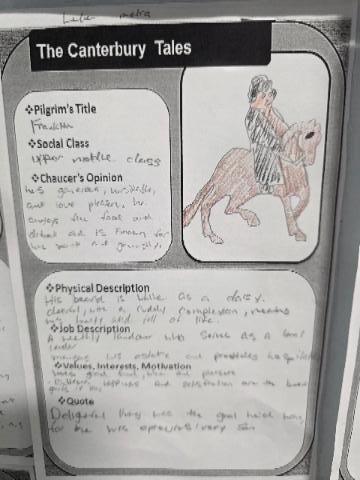 The Canterbury Tales
❖Pilgrim's Title
Franklin
❖Social Class
upper middle class
❖Chaucer's Opinion
hes generous,
and love pleasure, he
always fine food and
drink and is known for
his
❖Physical Description
His beard is white as a daisy.
cheerful, with a ruddy complexion, meaning
hes hearty and full of life.
❖Job Description
A wealthy landowner who serves as a local
leader
manages his estate and provides hospitality
❖Values, Interests, Motivation
loves good food, wine and pleasure
happiness and satisfaction are the
❖Quote
Delightful living was the goal
for he was epicurus' very son